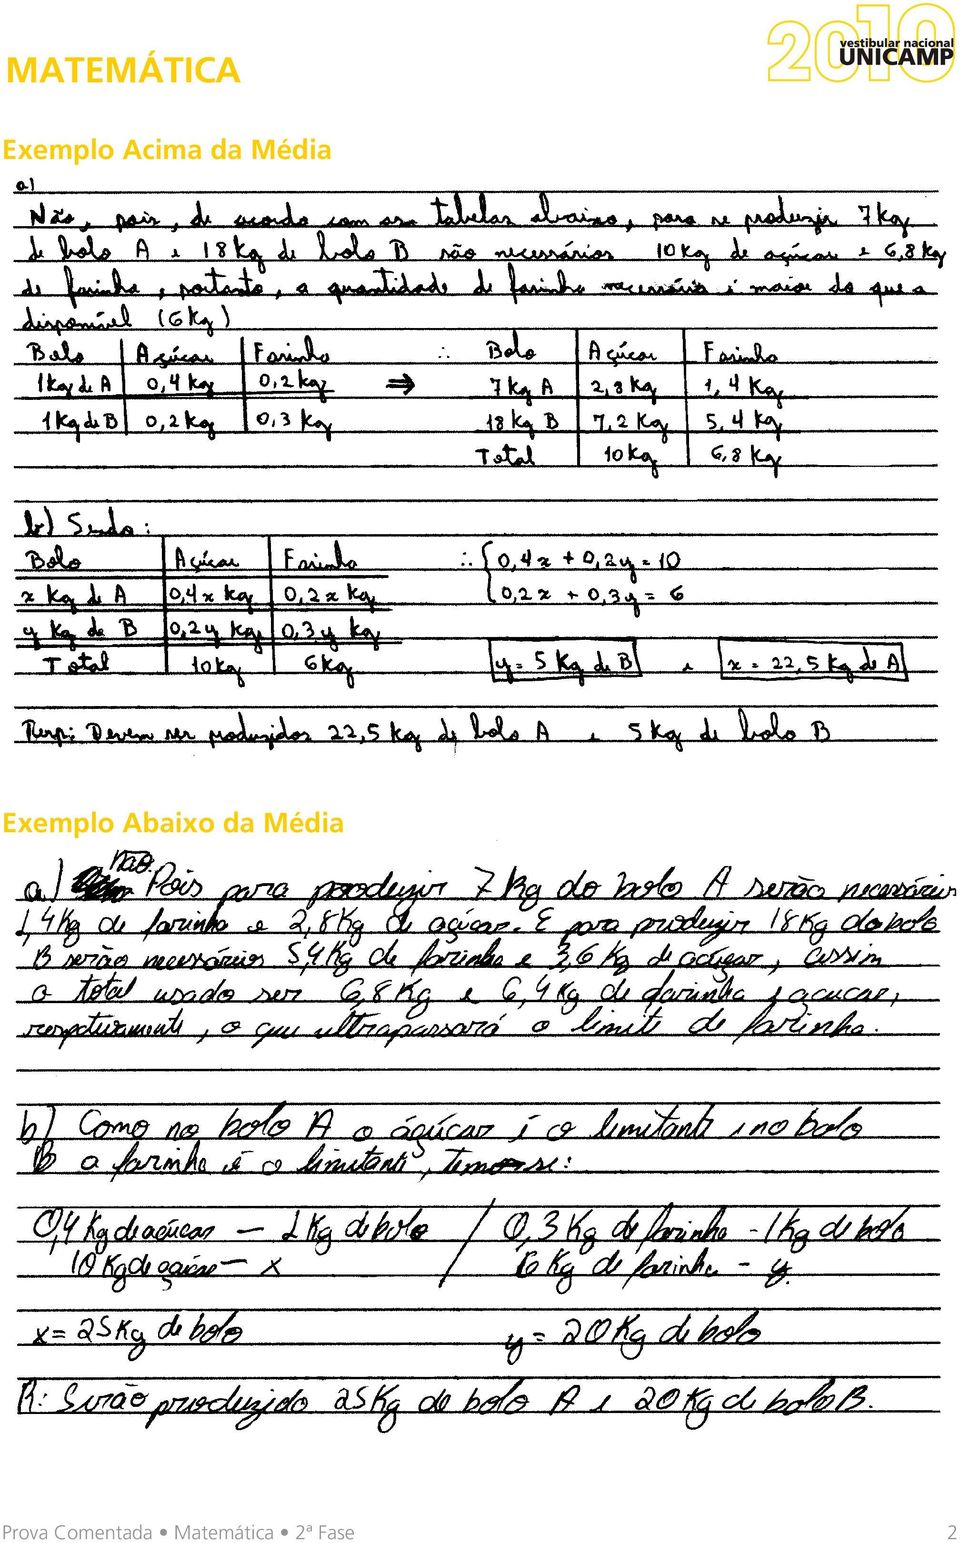 2010
vestibular nacional
UNICAMP
MATEMÁTICA
Exemplo Acima da Média
a)
Não, pois, de acordo com as tabelas abaixo, para se produzir 7kg
de bolo A e 18kg de bolo B são necessários 10kg de açúcar e 6,8kg
de farinha, portanto, a quantidade de farinha necessária é maior do que a
disponível (6kg)
Bolo Açúcar Farinha ∴ Bolo Açúcar Farinha
1kg de A 0,4kg 0,2kg ⇒ 7kg A 2,8kg 1,4Kg
1Kg de B 0,2kg 0,3kg 18kg B 7,2Kg 5,4kg
Total 10kg 6,8kg
b) Sendo:
Bolo Açúcar Farinha ∴ { 0,4x + 0,2y = 10
x Kg de A 0,4x kg 0,2x kg 0,2x + 0,3y = 6
y Kg de B 0,2y kg 0,3y kg
Total 10kg 6kg y = 5Kg de B e x = 22,5kg de A
Resp: Devem ser produzidos 22,5kg de bolo A e 5kg de bolo B
Exemplo Abaixo da Média
a) Não. Pois para produzir 7Kg do bolo A serão necessários
1,4Kg de farinha e 2,8Kg de açúcar. E para produzir 18Kg do bolo
B serão necessários 5,4Kg de farinha e 3,6Kg de açúçar, assim
o total usado ser 6,8Kg e 6,4Kg de farinha e acucar,
respectivamente, o que ultrapassará o limite de farinha.
b) Como no bolo A o áçúcar é o limitante e no bolo
B a farinha é o limitante, temos-se:
0,4Kg de acúcar — 1Kg de bolo / 0,3Kg de farinha - 1kg de bolo
10Kg de açúcar — x / 6Kg de farinha - y
x = 25Kg de bolo y = 20Kg de bolo
R: Serão produzido 25Kg do bolo A e 20Kg de bolo B.
Prova Comentada • Matemática • 2ª Fase 2